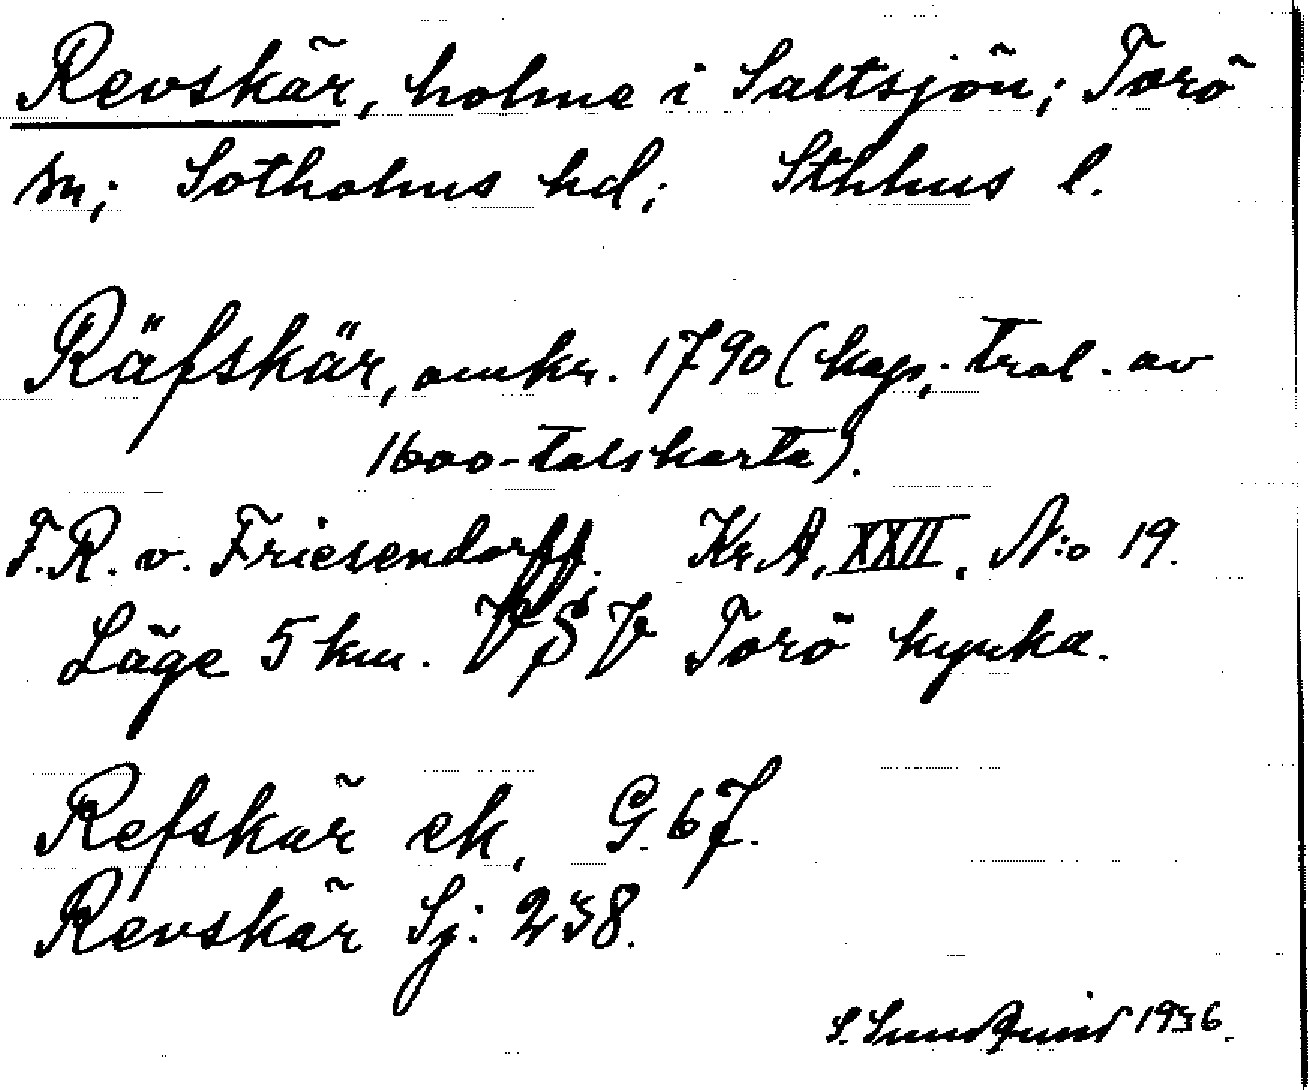 Revskär, holme i Saltsjön; Torö
sn; Sotholms hd; Sthlms l.
Räfskär, omkr. 1790 (kop. trol. av
1600-talskarta).
F.R. v. Friesendorff. Kr.A. XXII, N:o 19.
Läge 5 km. VSV Torö kyrka.
Refskär ek. G. 67.
Revskär Sj: 238.
S. Sundqvist 1936.